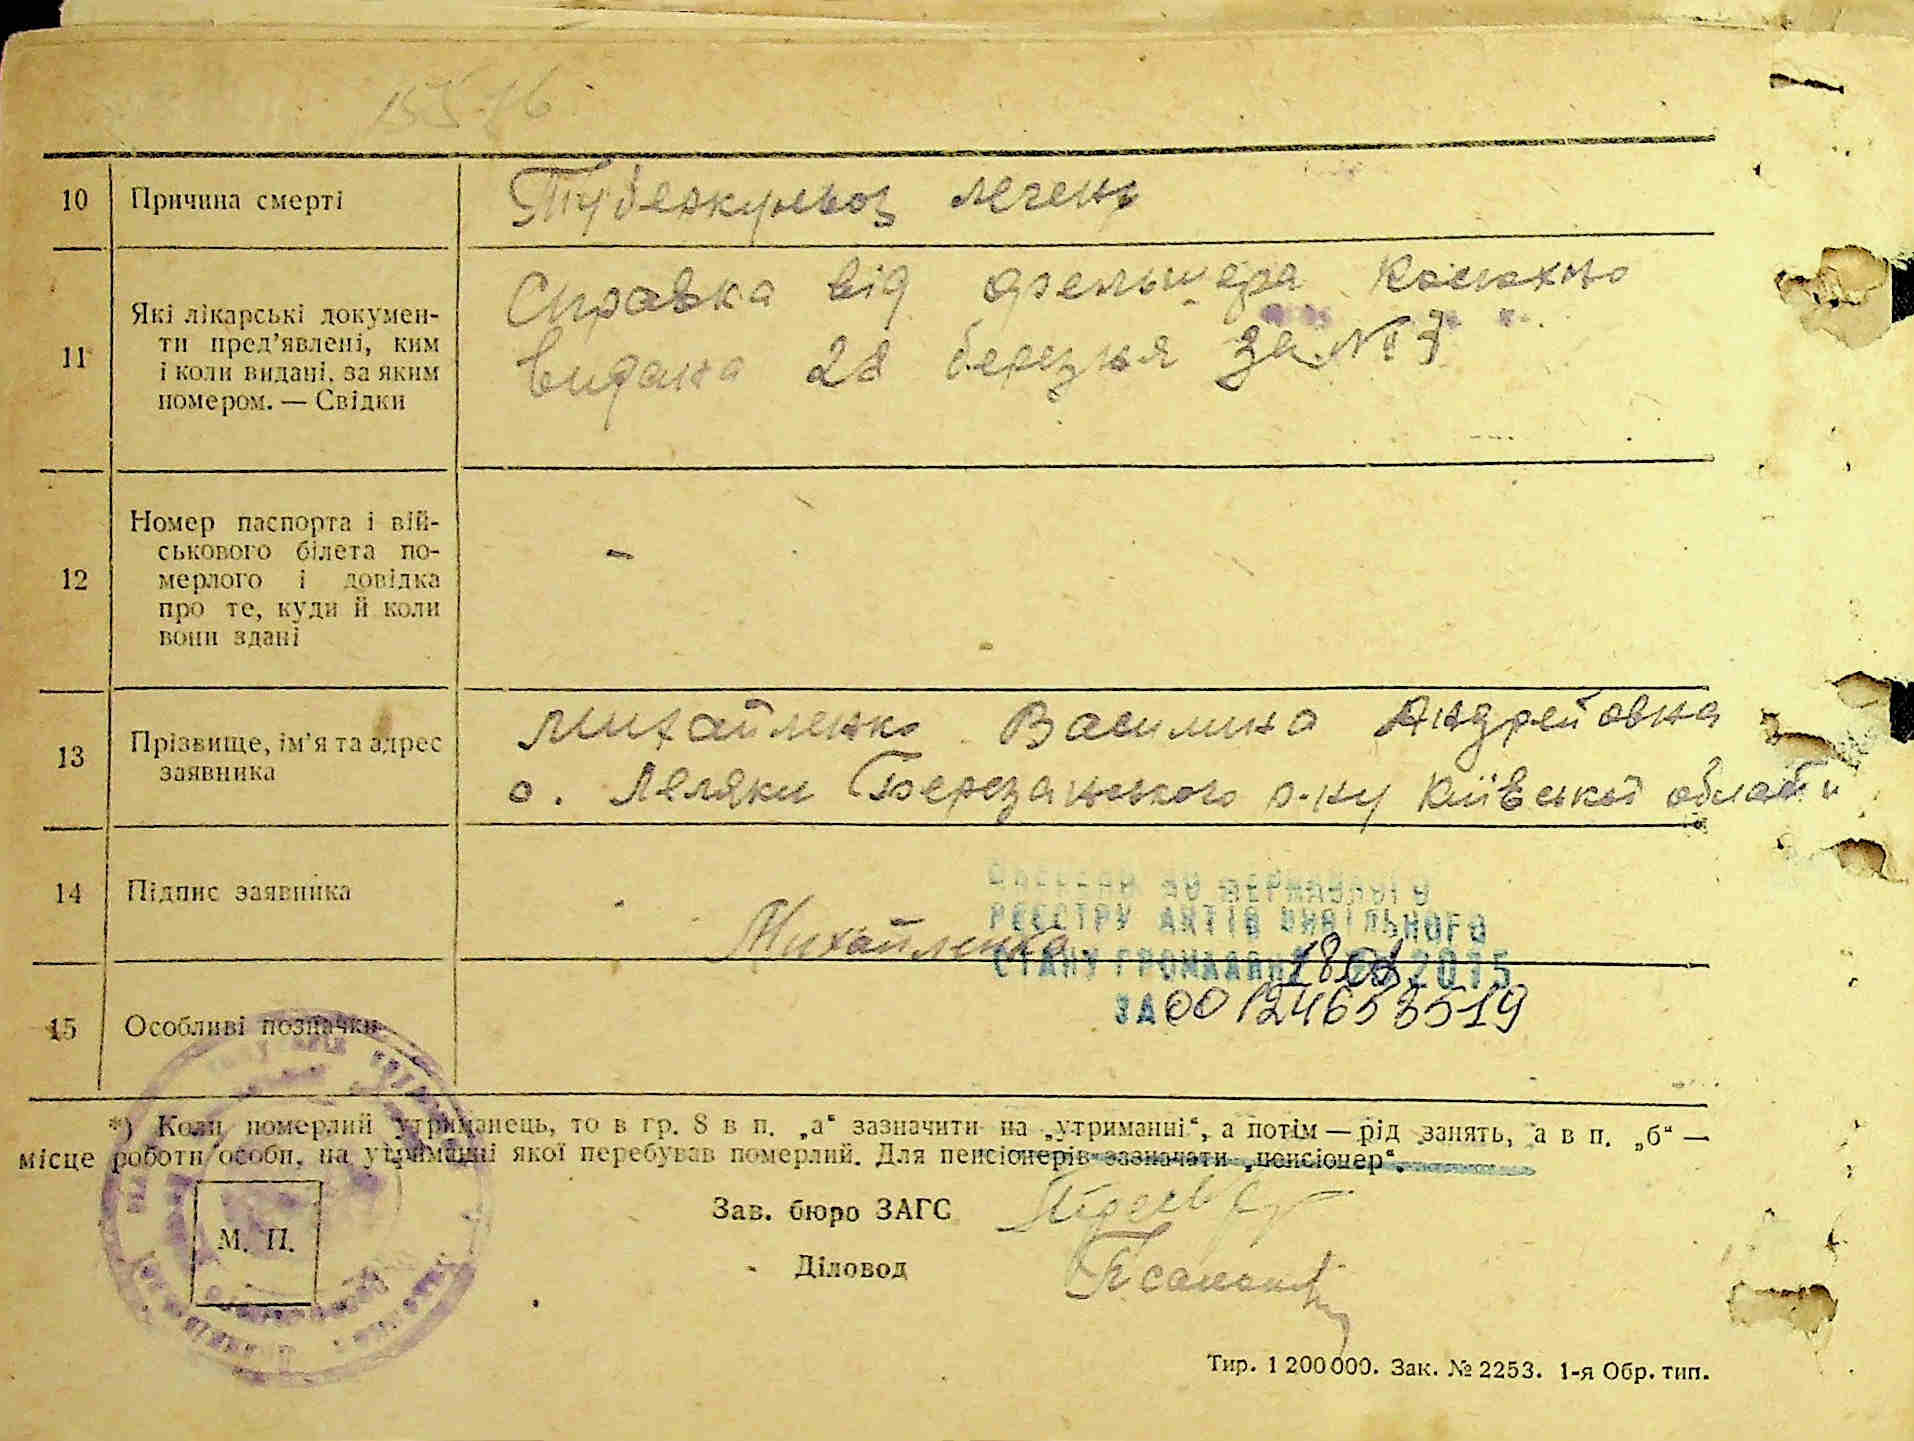 10 Причина смерті Туберкульоз легень
11 Які лікарські документи пред’явлені, ким і коли видані, за яким номером. — Свідки
Справка від фельшера
видана 28 березня за № 7
12 Номер паспорта і військового білета померлого і довідка про те, куди й коли вони здані
–
13 Прізвище, ім’я та адрес заявника
Михайленко Василина Андрейовна
с. Леляки Березанського р-ну Київської області
14 Підпис заявника Михайленко
ДЕРЖАВНОГО
РЕЄСТРУ АКТІВ ЦИВІЛЬНОГО
СТАНУ ГРОМАДЯН 2015
ЗА
15 Особливі позначки
*) Коли померлий утриманець, то в гр. 8 в п. „а“ зазначити на „утриманні“, а потім — рід занять, а в п. „б“ —
місце роботи особи, на утриманні якої перебував померлий. Для пенсіонерів зазначати „пенсіонер“.
Зав. бюро ЗАГС
М. П.
Діловод
Тир. 1 200 000. Зак. № 2253. 1-я Обр. тип.